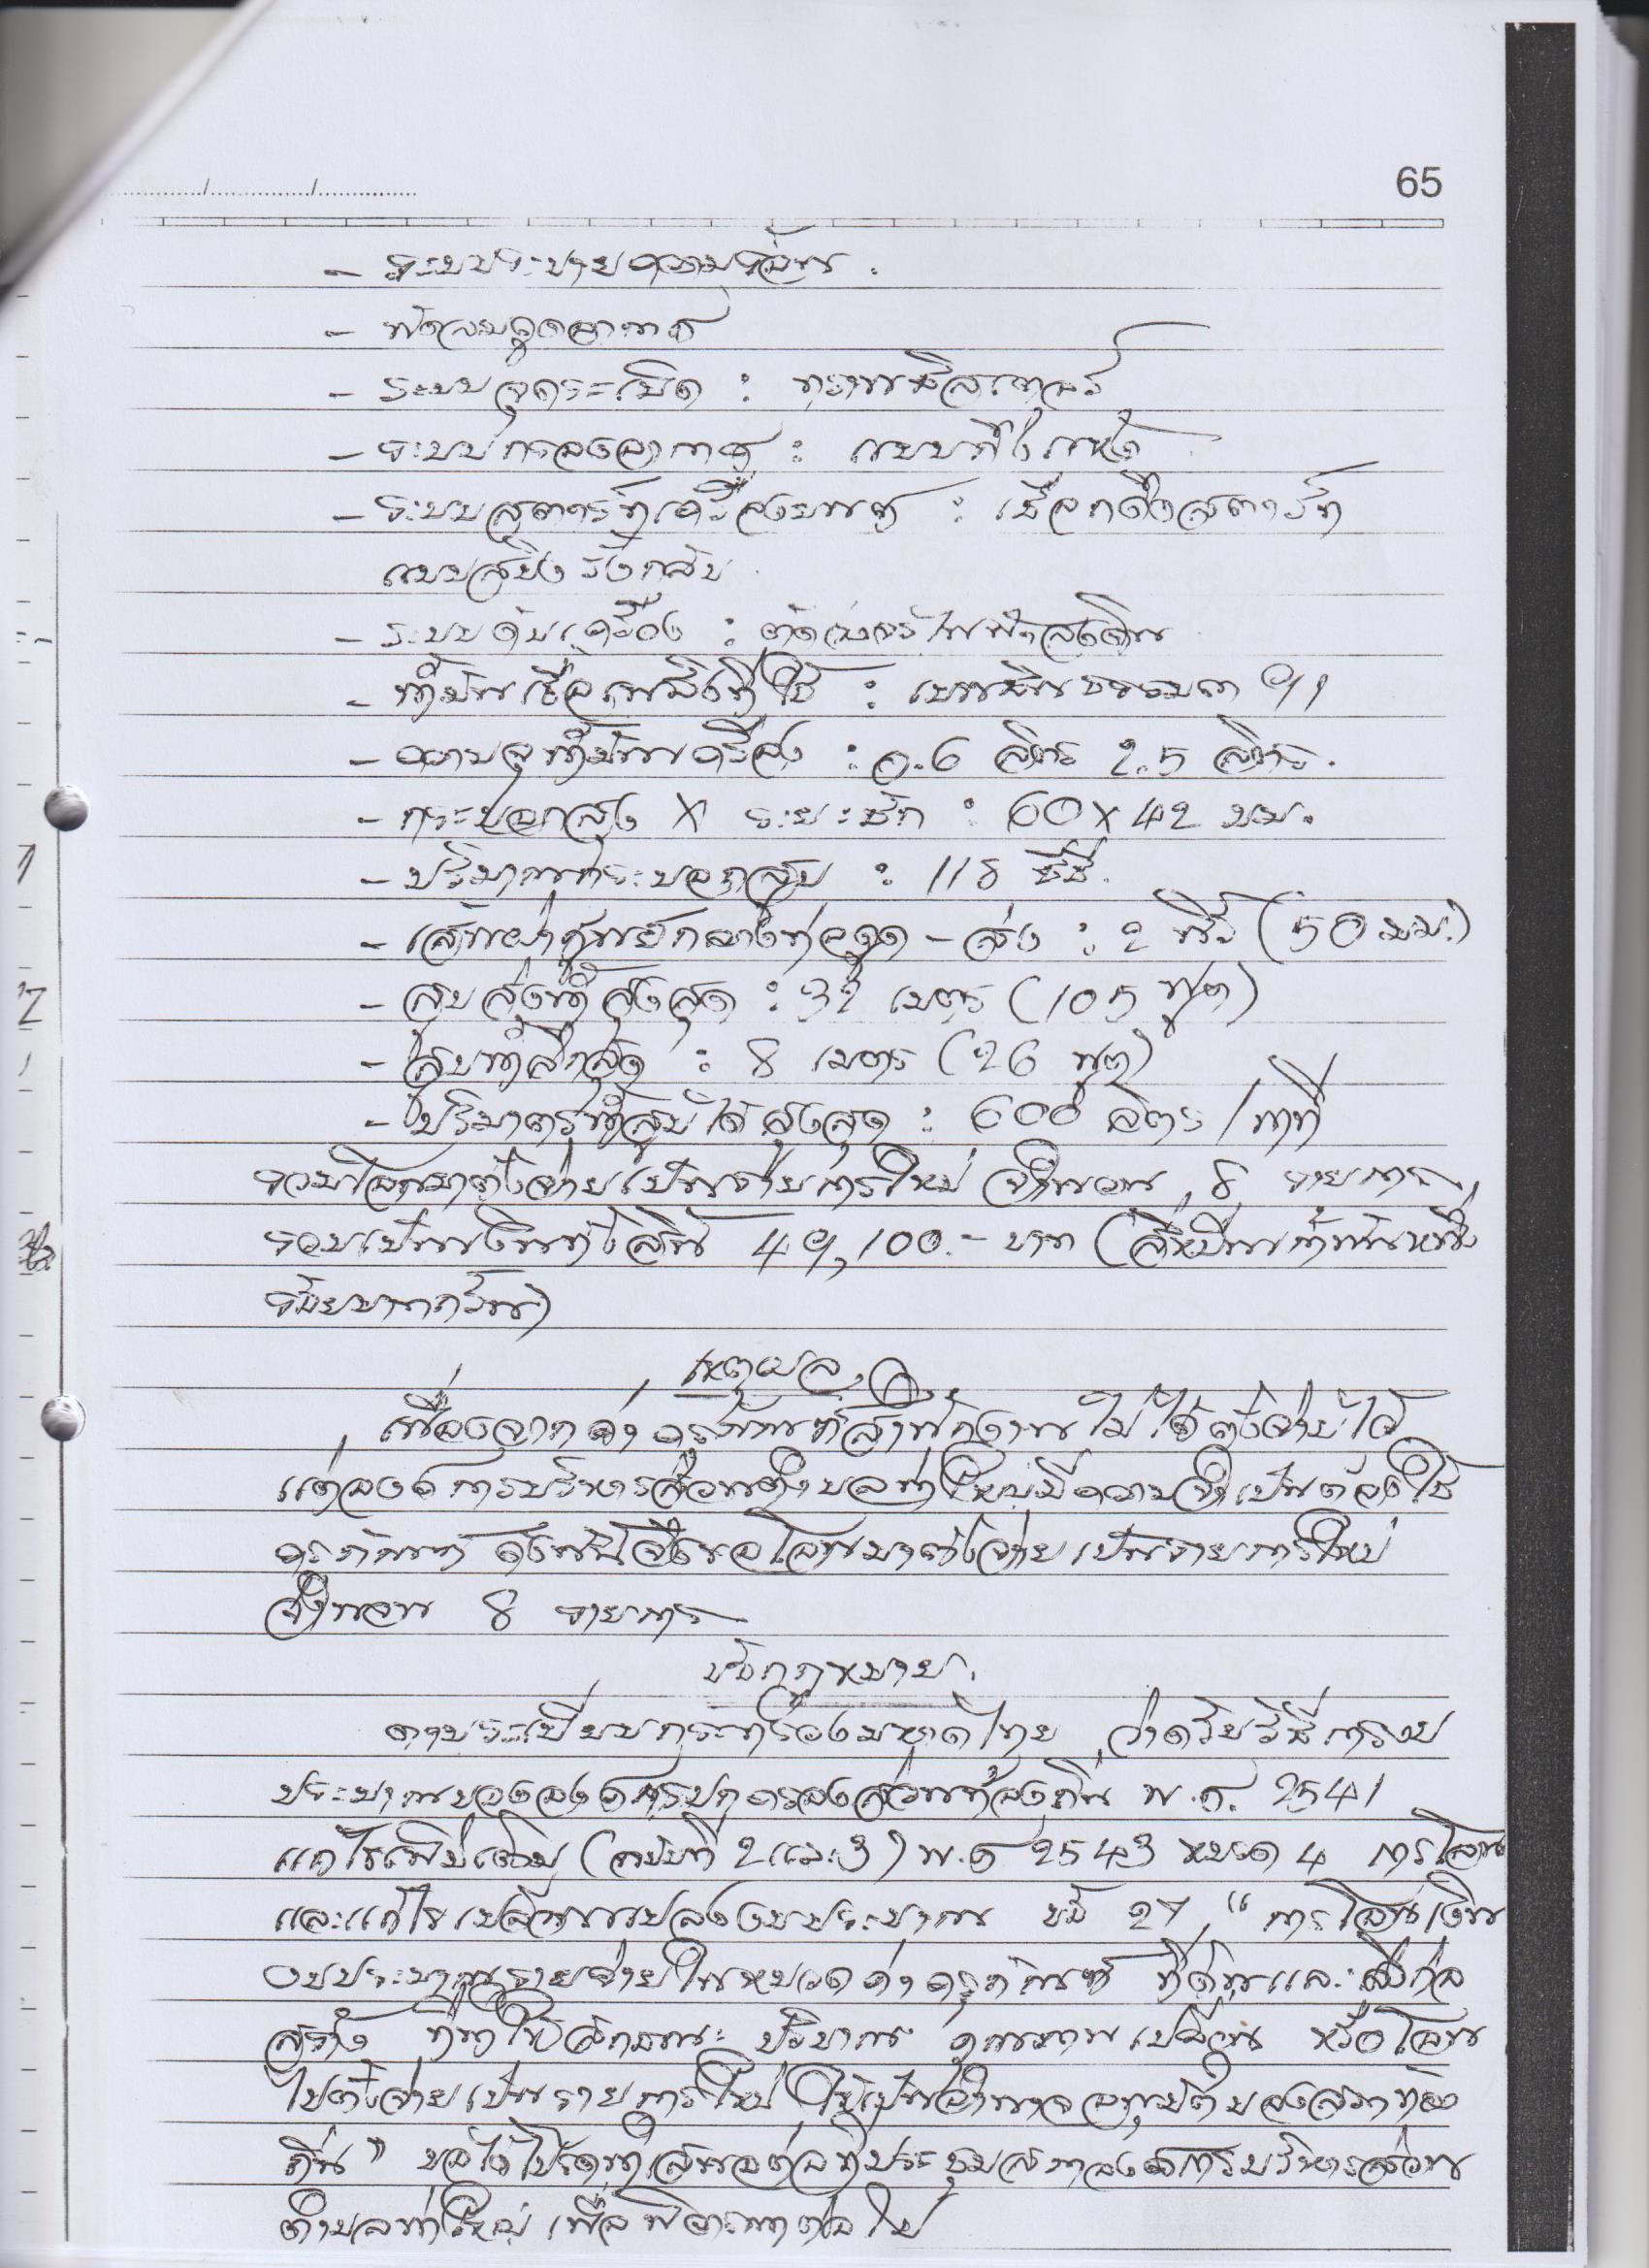 65
- ระบบระบายความร้อน .
- พัดลมดูดอากาศ
- ระบบจุดระเบิด : ทรานซิสเตอร์
- ระบบกรองอากาศ : แบบกึ่งแห้ง
- ระบบสตาร์ทเครื่องยนต์ : เชือกดึงสตาร์ท
แบบสปริงรั้งกลับ
- ระบบดับเครื่อง : ตัดวงจรไฟฟ้าลงดิน
- น้ำมันเชื้อเพลิงที่ใช้ : เบนซินธรรมดา 91
- ความจุน้ำมันเครื่อง : 0.6 ลิตร 2.5 ลิตร .
- กระบอกสูบ X ระยะชัก : 60 X 42 มม.
- ปริมาณกระบอกสูบ : 118 ซีซี.
- เส้นผ่าศูนย์กลางท่อดูด - ส่ง : 2 นิ้ว (50 มม.)
- สูบส่งน้ำสูงสุด : 32 เมตร (105 ฟุต)
- สูบน้ำลึกสุด : 8 เมตร (26 ฟุต)
- ปริมาตรน้ำสูบได้สูงสุด : 600 ลิตร / นาที
รวมโอนมาตั้งจ่ายเป็นรายการใหม่ จำนวน 8 รายการ
รวมเป็นเงินทั้งสิ้น 49,100.- บาท (สี่หมื่นเก้าพันหนึ่ง
ร้อยบาทถ้วน)
เหตุผล
เนื่องจากค่าครุภัณฑ์สำนักงานไม่ได้ตั้งจ่ายไว้
แต่องค์การบริหารส่วนตำบลท่าใหญ่มีความจำเป็นต้องใช้
ครุภัณฑ์ ดังนั้นจึงขอโอนมาตั้งจ่ายเป็นรายการใหม่
จำนวน 8 รายการ
ข้อกฎหมาย.
ตามระเบียบกระทรวงมหาดไทย ว่าด้วยวิธีการงบ
ประมาณขององค์กรปกครองส่วนท้องถิ่น พ.ศ. 2541
แก้ไขเพิ่มเติม (ฉบับที่ 2 และ 3) พ.ศ 2543 หมวด 4 การโอน
และแก้ไขเปลี่ยนแปลงงบประมาณ ข้อ 27 “ การโอนเงิน
งบประมาณรายจ่ายในหมวดค่าครุภัณฑ์ ที่ดินและสิ่งก่อ
สร้าง ที่ทำให้ลักษณะ ปริมาณ คุณภาพเปลี่ยน หรือโอน
ไปตั้งจ่ายเป็นรายการใหม่ ให้เป็นอำนาจอนุมัติของสภาท้อง
ถิ่น ” ขอได้โปรดนำเสนอต่อที่ประชุมสภาองค์การบริหารส่วน
ตำบลท่าใหญ่ เพื่อพิจารณาต่อไป